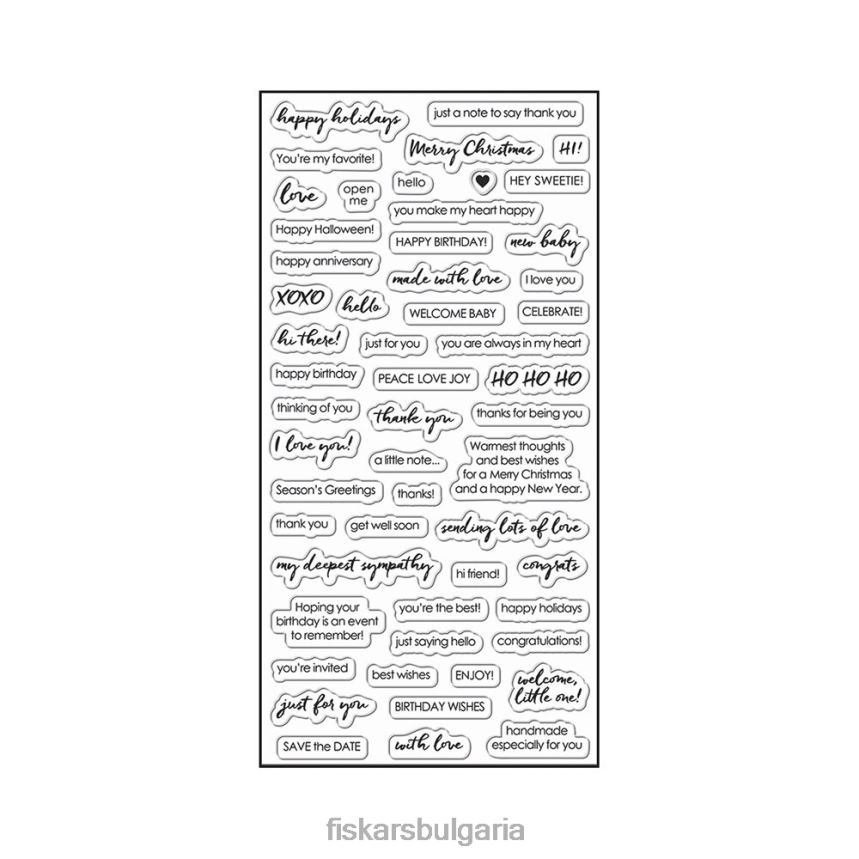 happy holidays
just a note to say thank you
You're my favorite!
Merry Christmas
HI!
love
open
me
hello
HEY SWEETIE!
you make my heart happy
Happy Halloween!
HAPPY BIRTHDAY!
new baby
happy anniversary
made with love
I love you
XOXO
hello
WELCOME BABY
CELEBRATE!
hi there!
just for you
you are always in my heart
happy birthday
PEACE LOVE JOY
HO HO HO
thinking of you
thank you
thanks for being you
I love you!
a little note...
Warmest thoughts
and best wishes
for a Merry Christmas
and a happy New Year.
Season's Greetings
thanks!
thank you
get well soon
sending lots of love
my deepest sympathy
hi friend!
congrats
Hoping your
birthday is an event
to remember!
you're the best!
happy holidays
just saying hello
congratulations!
you're invited
best wishes
ENJOY!
welcome,
little one!
just for you
BIRTHDAY WISHES
SAVE the DATE
with love
handmade
especially for you
fiskarsbulgaria